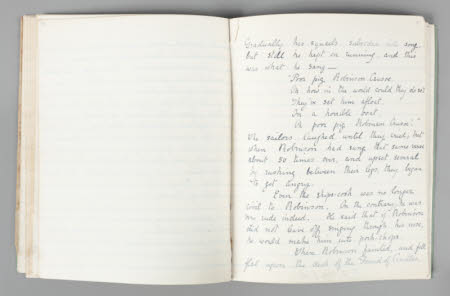 Gradually his squeals subsided into song
but still he kept on running, and this
was what he sang—
"Poor pig Robinson Crusoe
Oh how in the world could they do so?
They've set him afloat
In a horrible boat
Oh poor pig Robinson Crusoe!"
The sailors laughed until they cried; but
when Robinson had sung that same verse
about 50 times over, and upset several
by rushing between their legs, they began
to get angry.
Even the ships-cook was no longer
civil to Robinson. On the contrary, he was
very rude indeed. He said that if Robinson
did not leave off singing through his nose,
he would make him into pork chops.
Then Robinson fainted, and fell
flat upon the deck of the Pound of Candles.